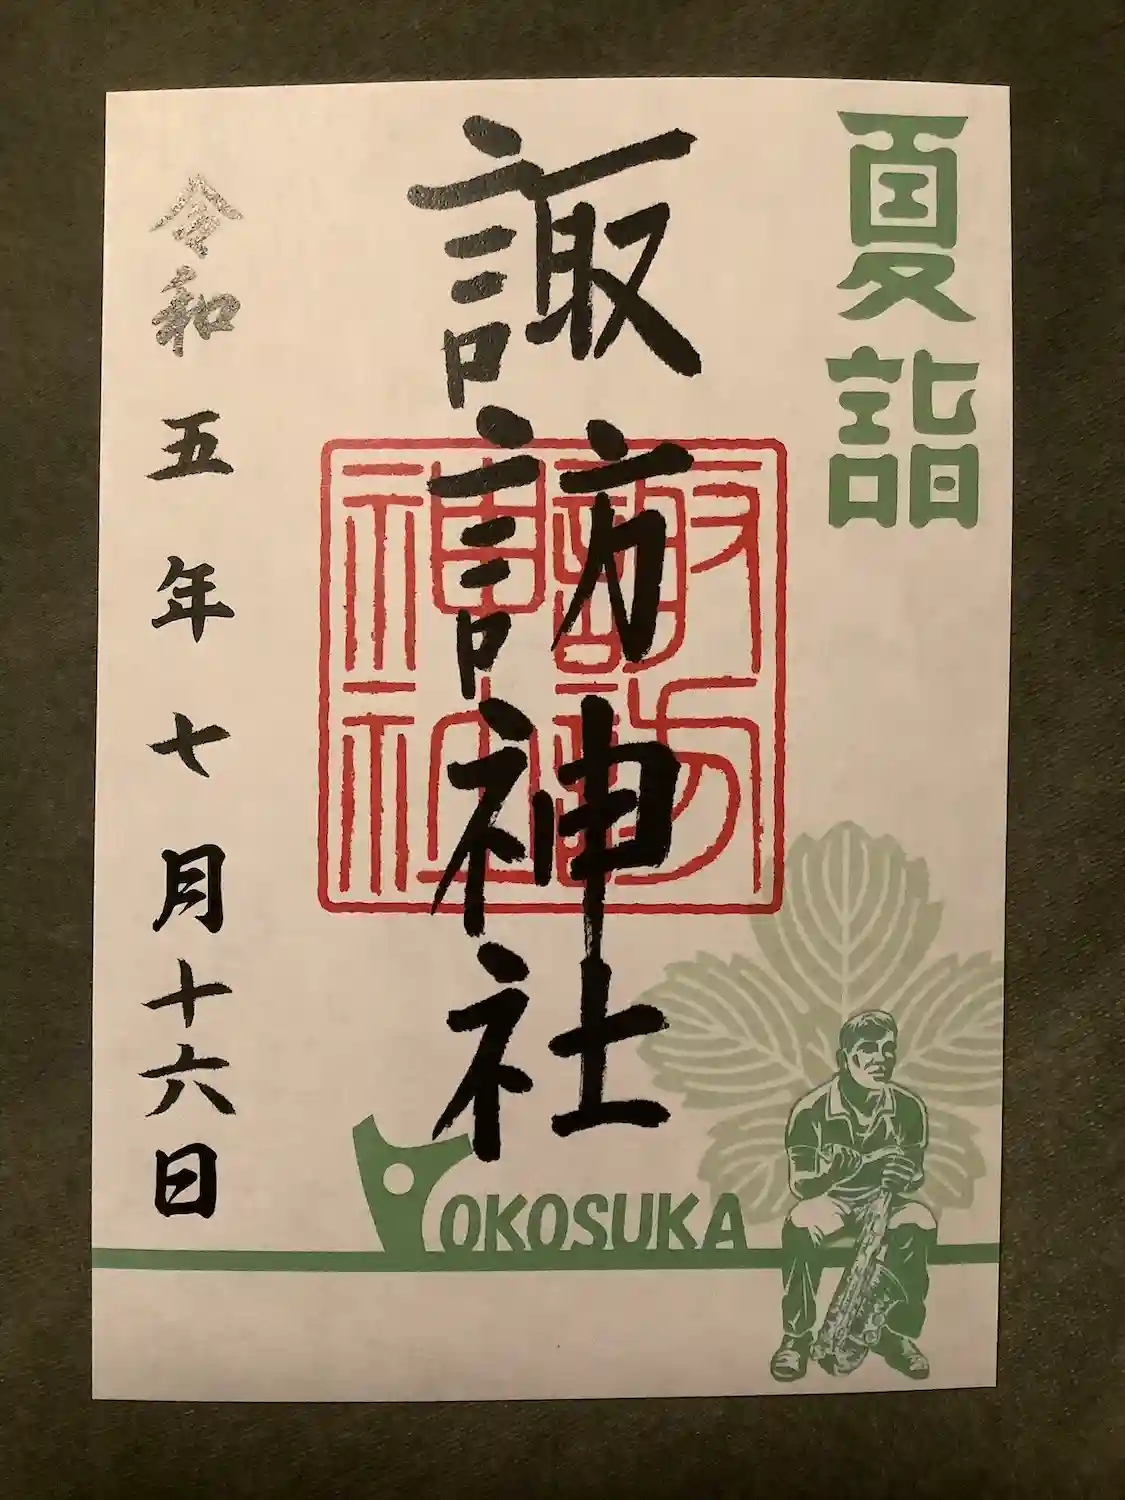 夏詣
諏訪神社
諏訪
神社
令和五年七月十六日
YOKOSUKA